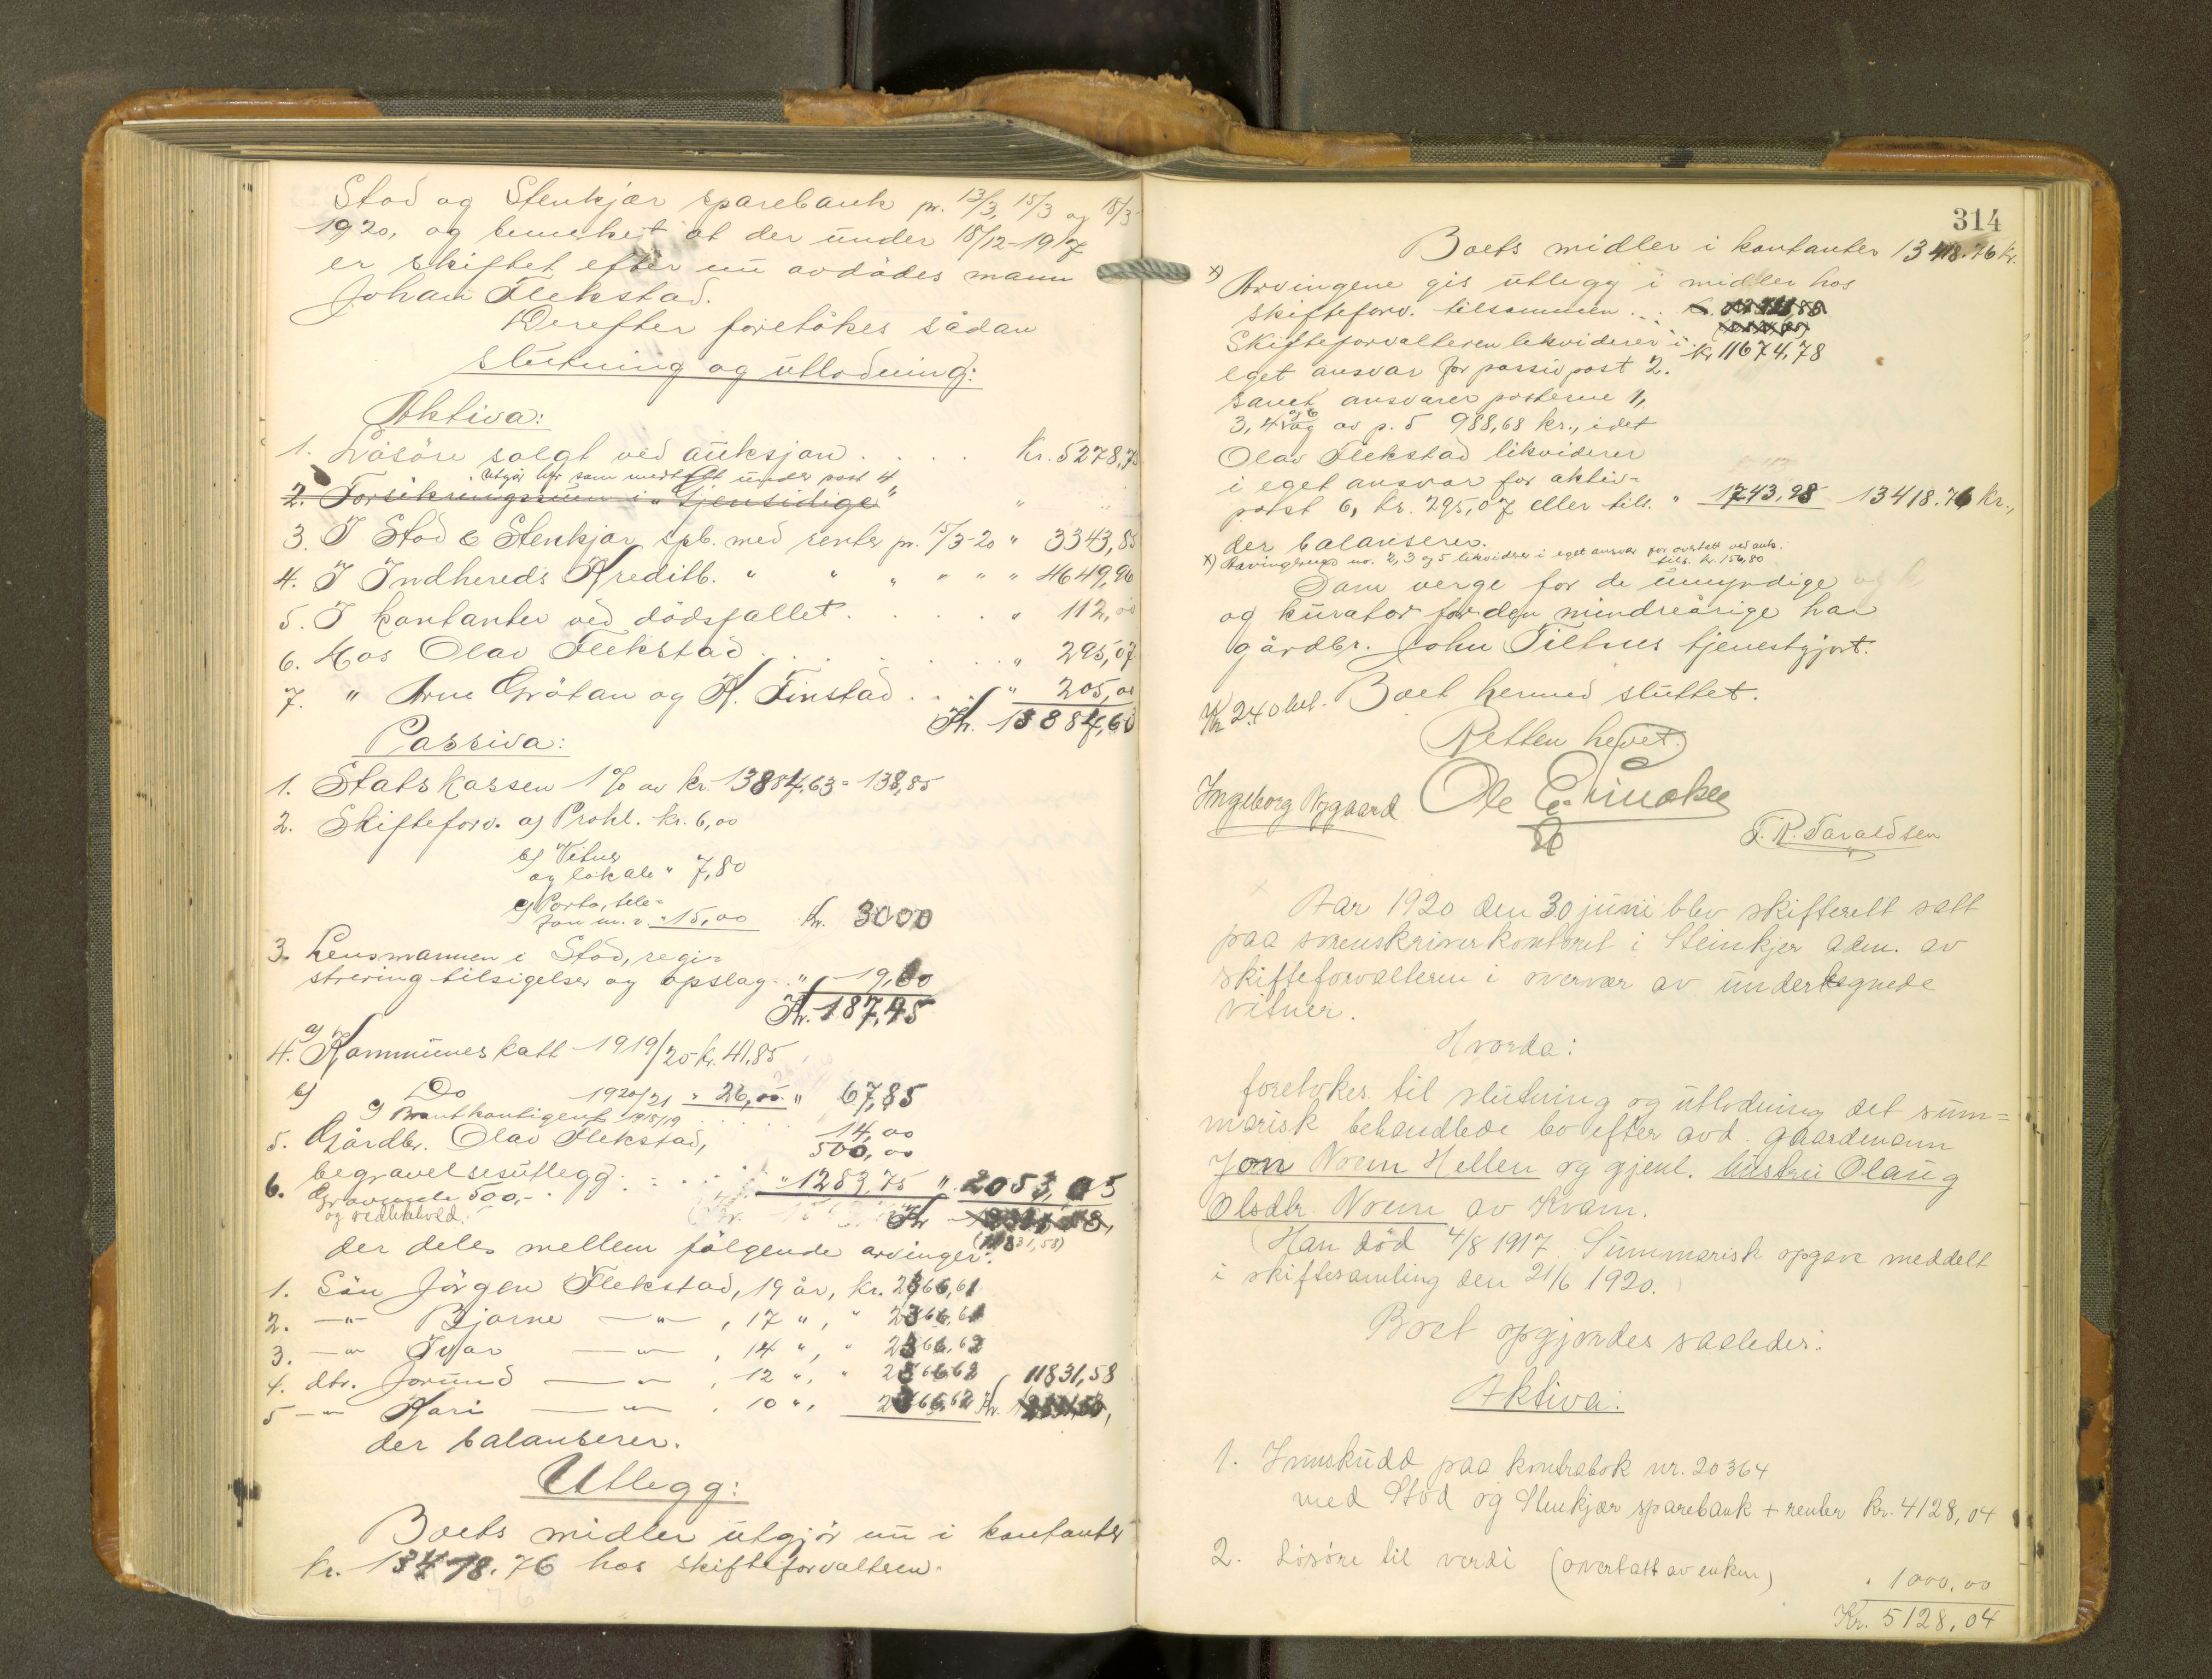 Stod og Stenkjær sparebank pr. 13/3, 15/3 og 18/3
1920, og bemerket at der under 18/12-1917
er skiftet efter nu avdødes mann
Johan Flekstad.
Derefter foretökes sådan
slutning og utlodning:
Aktiva:
1. Lösöre solgt ved auksjon . . . . Kr. 5278,75
utgår her som medtatt under post 4
2. Forsikringssum i "Gjensidige" " "
3. I Stod & Stenkjær spb. med renter pr. 15/3-20 " 3343,85
4. I Indhereds Kreditb. " " " " " " 4649,96
5. I kontanter ved dödsfallet . . . . . " 112,00
6. Hos Olav Flekstad . . . . . . . " 295,07
7. " Arne Gråtan og K. Finstad . . . " 205,00
Kr. 13884,63
Passiva:
1. Statskassen 1% av kr. 13884,63 = 138,85
2. Skifteforv. a) Prokl. kr. 6,00
b) Vitner
og lokale " 7,80
c) Porto, tele=
fon m.v. " 15,00 kr. 3000
3. Lensmannen i Stod, regi=
strering tilsigelser og opslag . . " 19,60
Kr. 187,45
4. a) Kommuneskatt 1919/20 kr. 41,85
b) Do 1920/21 " 26,00 " 67,85
c) Brantkontigent 1918/19 . . . . . 14,00
5. Gårdbr. Olav Flekstad, 500,00
begravelsesutlegg . . . . . " 1283,75 " 2053,05
6. Gravstøtte 500,-
og vedlikehold. Kr
(11831,58)
der deles mellem følgende arvinger:
1. Sön Jörgen Flekstad, 19 år, kr. 2366,61
2. —"— Bjarne —"—, 17 ", " 2366,61
3. —"— Ivar —"—, 14 ", " 2366,62
4. dtr. Jorund —"—, 12 ", " 2366,62 11831,58
5 —"— Kari —"—, 10 ", 2366,62 Kr.
der balanserer.
Utlegg:
Boets midler utgjör nu i kontanter
kr. 13418.76 hos skifteforvalteren.
314
Boets midler i kontanter 13418.76 kr.
x) Arvingene gis utlegg i midler hos
skifteforv. tilsammen . .
Skifteforvalteren likviderer i kr 11674,78
eget ansvar for passivpost 2.
samt ansvarer posterne 1,
3, 4 og 6 og av p. 5 988,68 kr., idet
Olav Flekstad likviderer
i eget ansvar for aktiv=
post 6, kr. 295,07 eller tils. " 1743,98 13418.76 kr.,
der balanserer.
x) Arvingerne no. 2, 3 og 5 likviderer i eget ansvar for overtatt ved auk.
tils. kr. 156,80
Som verge for de umyndige
og kurator for den mindreårige har
gårdbr. John Tiltnes tjenestgjort.
Kr 240 bet. Boet hermed sluttet.
Retten hevet.
Ingeborg Nygaard Ole
T. R. Taraldsen
Aar 1920 den 30 juni blev skifterett satt
paa sorenskriverkontoret i Steinkjer adm. av
skifteforvalteren i overvær av undertegnede
vitner.
Hvorda:
foretokes til slutning og utlodning det sum=
marisk behandlede bo efter avd. gaardmann
Jon Noem Hellem og gjenl. hustru Olaug
Olsdtr. Noem av Kvam.
Han död 4/8 1917. Summarisk opgave meddelt
i skiftesamling den 21/6 1920.
Boet opgjordes saaledes:
Aktiva:
1. Innskudd paa kontrabok nr. 20364
med Stod og Stenkjær sparebank + renter kr. 4128,04
2. Lösöre til verdi (overtatt av enken)
" 1000,00
Kr. 5128,04